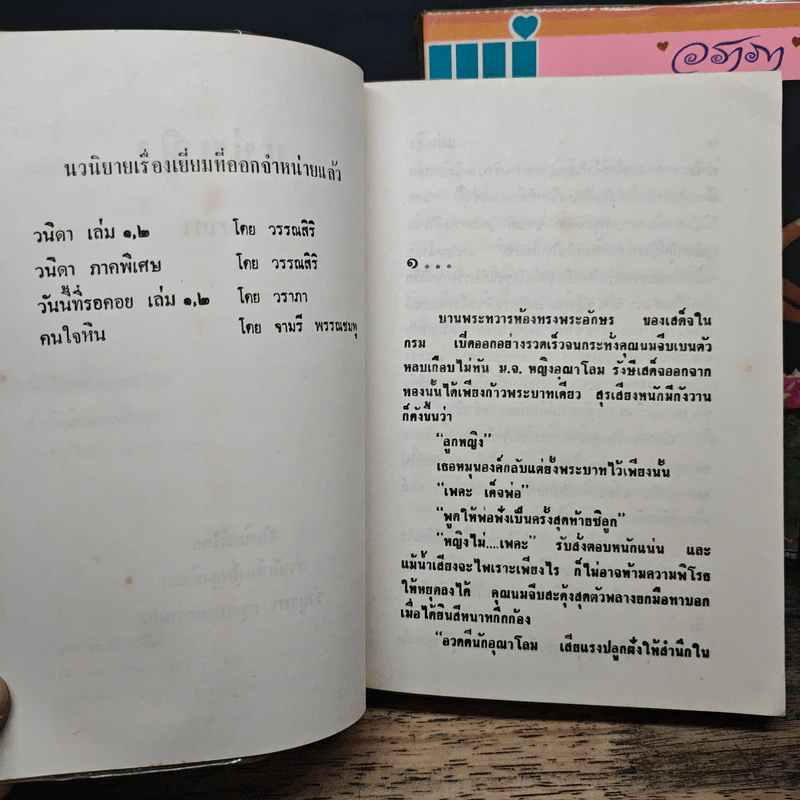 นวนิยายเรื่องเยี่ยมที่ออกจำหน่ายแล้ว
วนิดา เล่ม ๑,๒ โดย วรรณสิริ
วนิดา ภาคพิเศษ โดย วรรณสิริ
วันนี้ที่รอคอย เล่ม ๑,๒ โดย วราภา
คนใจหิน โดย จามรี พรรณชมพู
๑...
บานพระทวารห้องทรงพระอักษร ของเสด็จใน
กรม เปิดออกอย่างรวดเร็วจนกระทั่งคุณนมจีบเบนตัว
หลบเกือบไม่ทัน ม.จ. หญิงอุณาโลม รังษีเสด็จออกจาก
ห้องนั้นได้เพียงก้าวพระบาทเดียว สุรเสียงหนักมีกังวาน
ก็ดังขึ้นว่า
“ลูกหญิง”
เธอหมุนองค์กลับแต่ยั้งพระบาทไว้เพียงนั้น
“เพคะ เด็จพ่อ”
“พูดให้พ่อฟังเป็นครั้งสุดท้ายซิลูก”
“หญิงไม่....เพคะ” รับสั่งตอบหนักแน่น และ
แม้น้ำเสียงจะไพเราะเพียงไร ก็ไม่อาจห้ามความพิโรธ
ให้หยุดลงได้ คุณนมจีบสะดุ้งสุดตัวพลางยกมือทาบอก
เมื่อได้ยินสีหนาทกึกก้อง
“อวดดีนักอุณาโลม เสียแรงปลูกฝังให้สำนึกใน